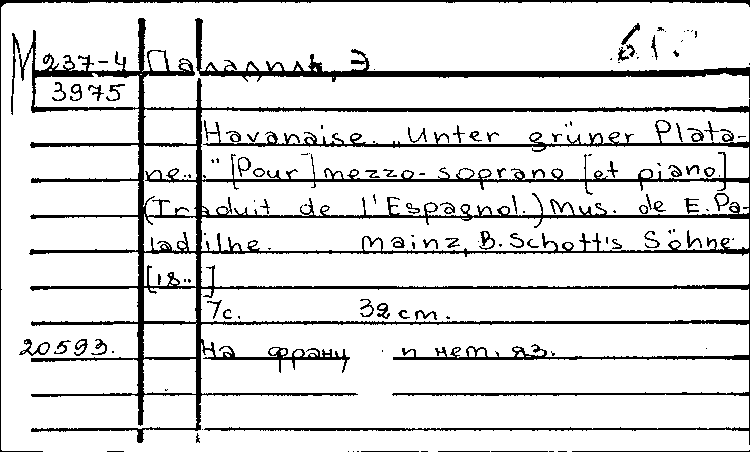 М 237-4 Паладиль, Э
3975
Havanaise. „Unter grüner Plata-
ne..." [Pour] mezzo-soprano [et piano]
(Traduit de l'Espagnol.) Mus. de E. Pa-
ladilhe. Mainz, B. Schott's Söhne
[18..]
7с. 32 cm.
20593. На франц и нем. яз.